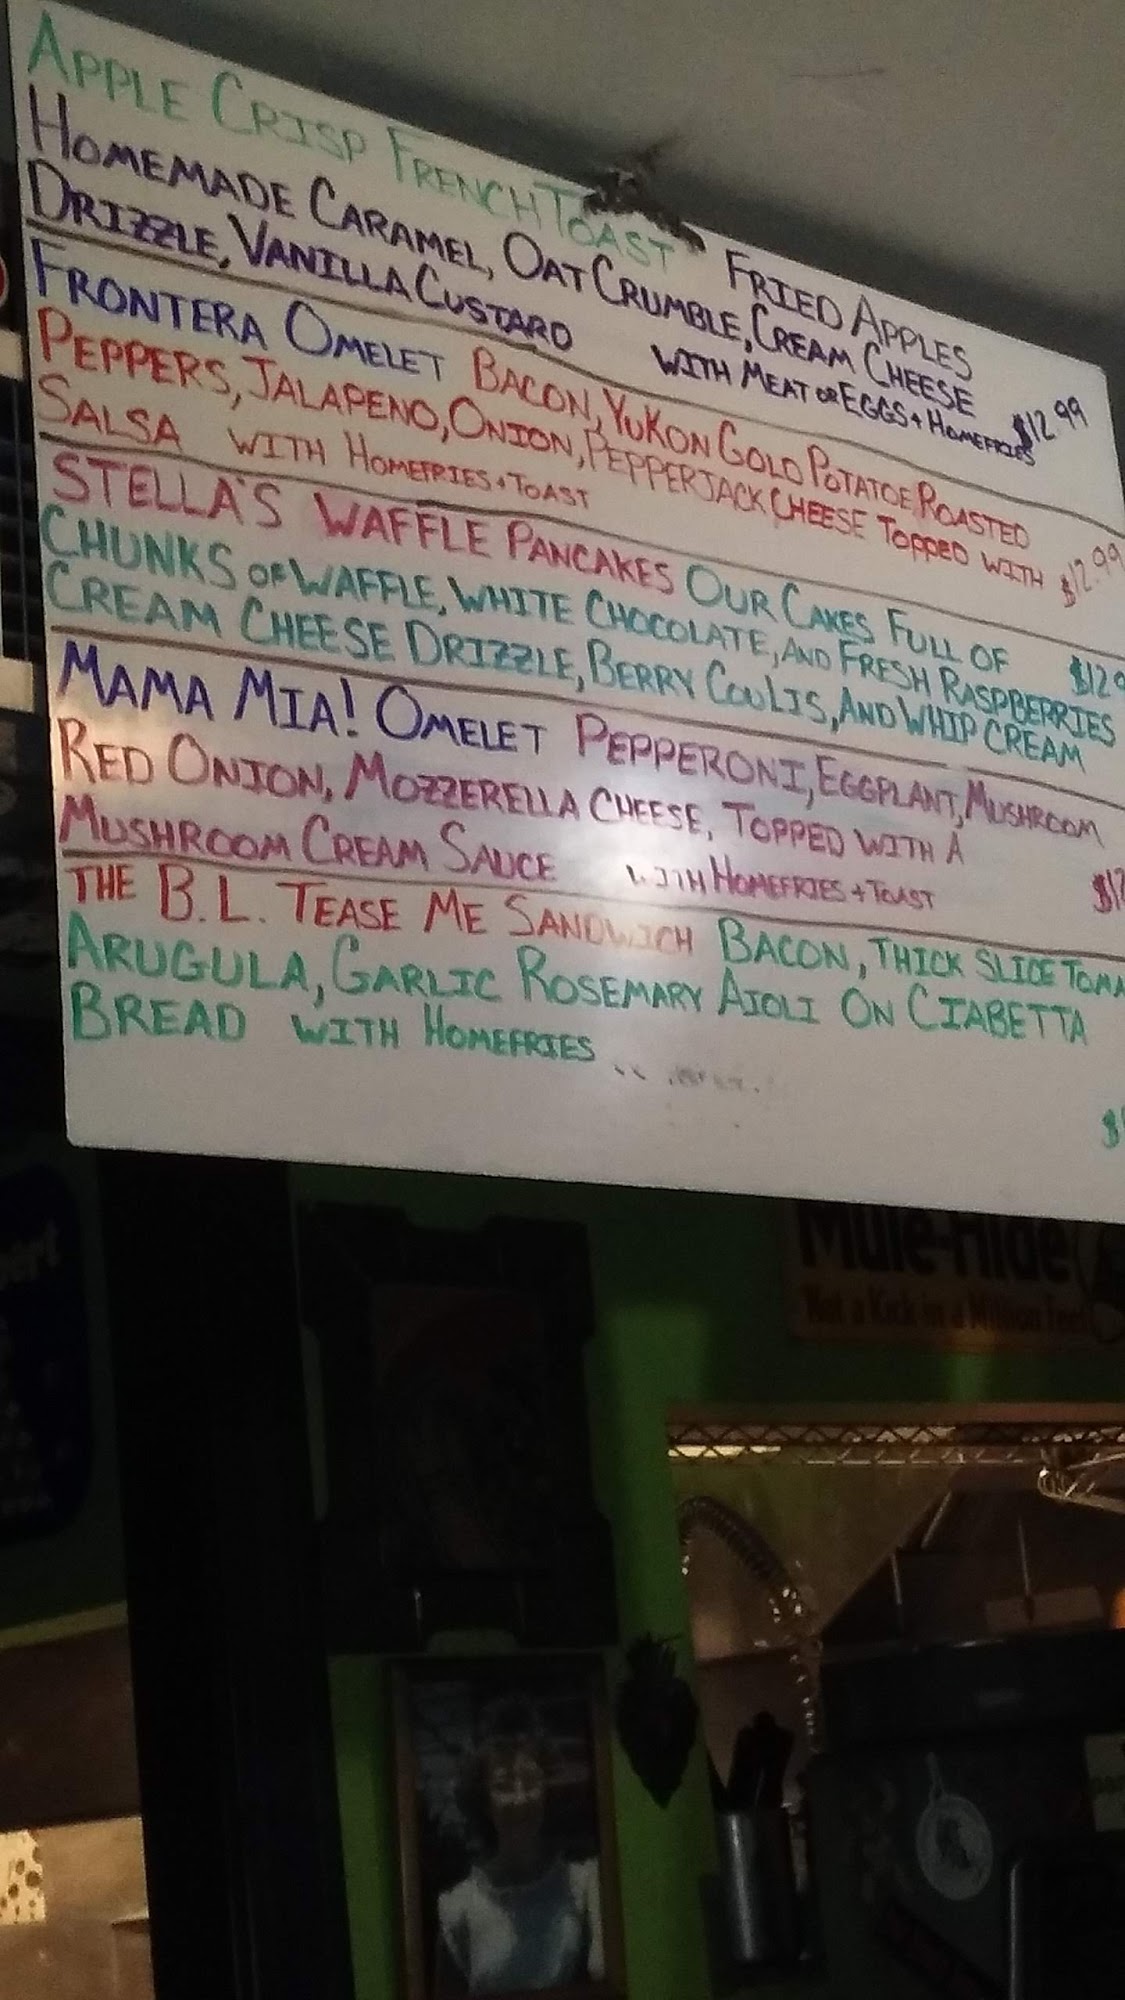 APPLE CRISP FRENCH TOAST FRIED APPLES
HOMEMADE CARAMEL, OAT CRUMBLE, CREAM CHEESE
DRIZZLE, VANILLA CUSTARD WITH MEAT OR EGGS + HOMEFRIES $12.99
FRONTERA OMELET BACON, YUKON GOLD POTATOE, ROASTED
PEPPERS, JALAPENO, ONION, PEPPERJACK CHEESE TOPPED WITH
SALSA WITH HOMEFRIES + TOAST $12.99
STELLA'S WAFFLE PANCAKES OUR CAKES FULL OF
CHUNKS OF WAFFLE, WHITE CHOCOLATE, AND FRESH RASPBERRIES
CREAM CHEESE DRIZZLE, BERRY COULIS, AND WHIP CREAM
MAMA MIA! OMELET PEPPERONI, EGGPLANT, MUSHROOM
RED ONION, MOZZERELLA CHEESE, TOPPED WITH A
MUSHROOM CREAM SAUCE WITH HOMEFRIES + TOAST
THE B.L. TEASE ME SANDWICH BACON, THICK SLICE TOMA
ARUGULA, GARLIC ROSEMARY AIOLI ON CIABETTA
BREAD WITH HOMEFRIES
Mule-Hide
Not a Kick in a Million Feet